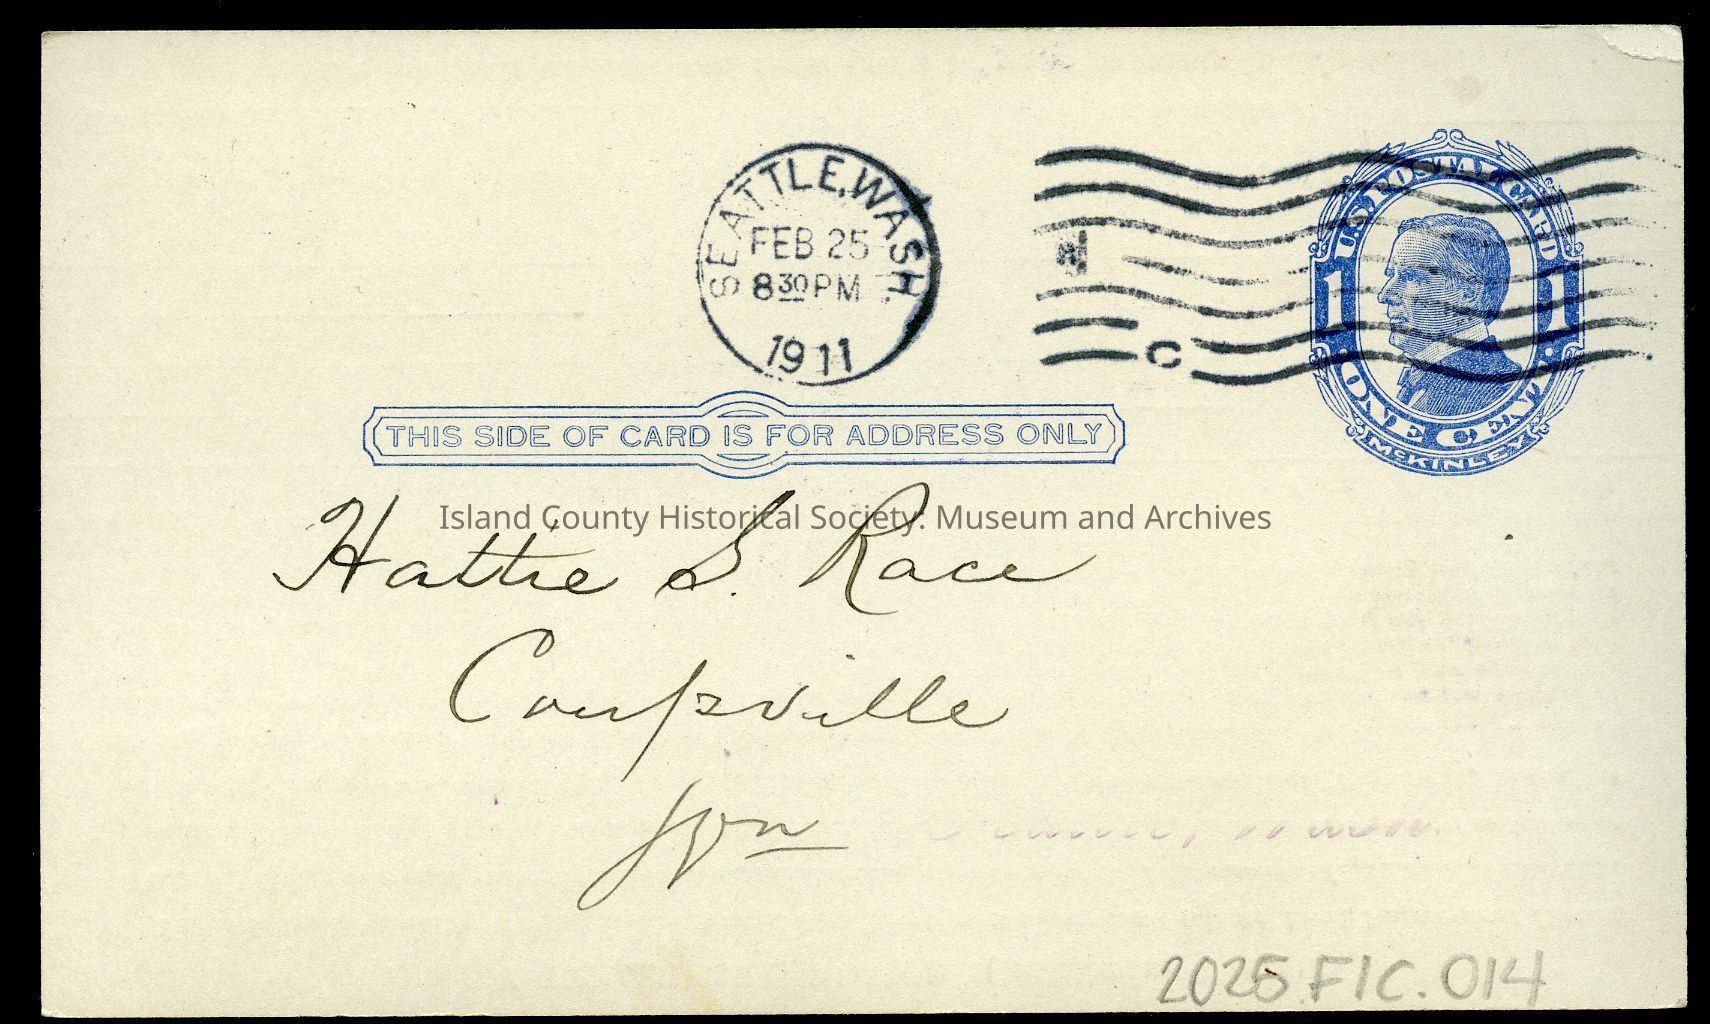 SEATTLE, WASH.
FEB 25
8 30 PM
1911
C
U.S. POSTAL CARD
1 1
ONE CENT
McKINLEY
THIS SIDE OF CARD IS FOR ADDRESS ONLY
Island County Historical Society: Museum and Archives
Hattie S. Race
Coupville
Wn
2025.FIC.014